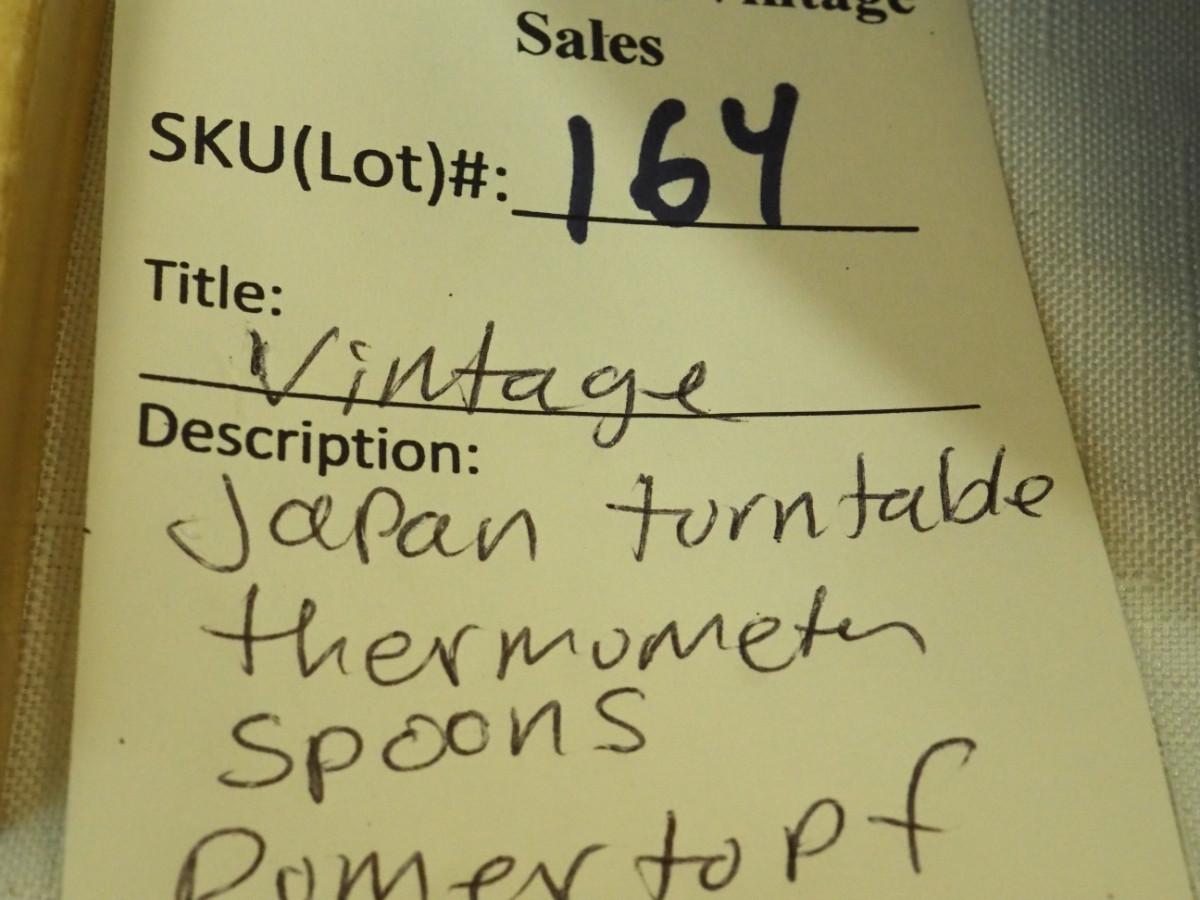 Vintage
Sales
SKU(Lot)#: 164
Title:
Vintage
Description:
Japan turntable
thermometer
spoons
Romertopf